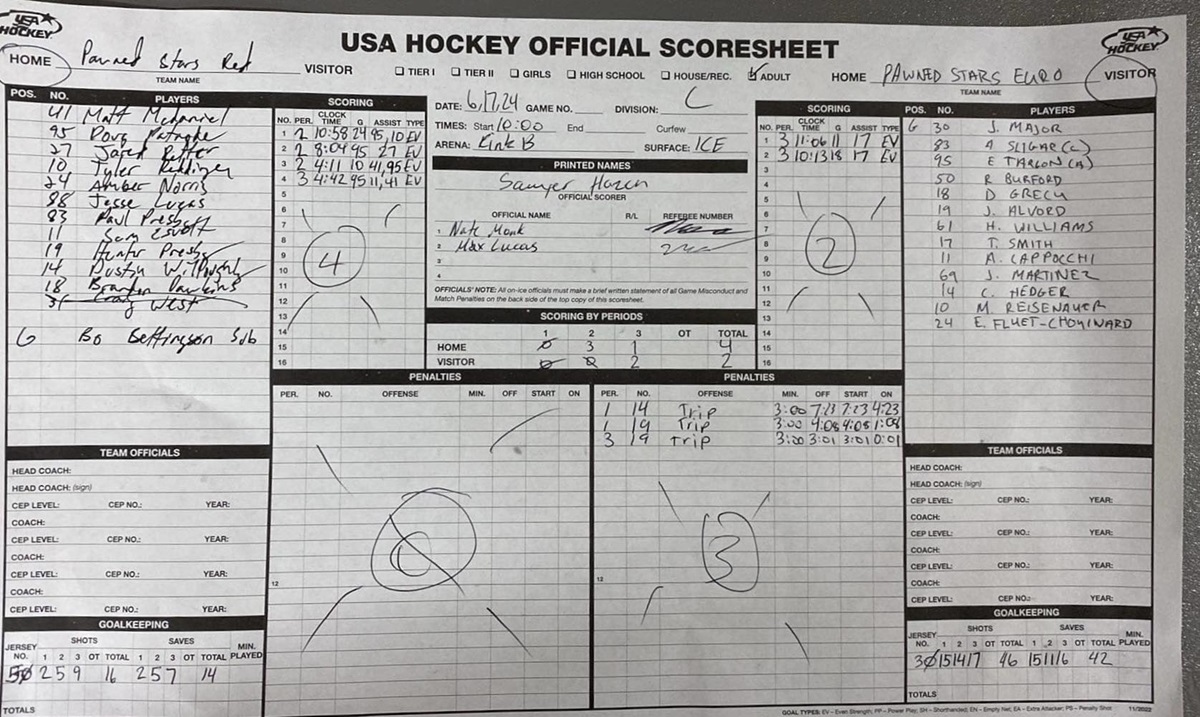 USA HOCKEY
USA HOCKEY OFFICIAL SCORESHEET
USA HOCKEY
HOME Pawned Stars Red VISITOR
TEAM NAME
☐ TIER I ☐ TIER II ☐ GIRLS ☐ HIGH SCHOOL ☐ HOUSE/REC. ☑ ADULT
HOME PAWNED STARS EURO VISITOR
TEAM NAME
POS. NO. PLAYERS
41 Matt McDaniel
95 Doug
27 Jared Ritter
10 Tyler
24 Amber Norris
88 Jesse Lugas
83 Paul
11 Sam
19 Hunter
14 Dustin
18 Brandon
31 Craig West
G Bo Sub
SCORING
NO. PER. CLOCK TIME G ASSIST TYPE
1 2 10:58 24 95,10 EV
2 2 8:04 95 27 EV
3 2 4:11 10 41,95 EV
4 3 4:42 95 11,41 EV
5
6
7
8
9
10
11
12
13
14
15
16
4
DATE: 6,17,24 GAME NO. DIVISION: C
TIMES: Start 10:00 End Curfew
ARENA: Rink B SURFACE: ICE
PRINTED NAMES
Sawyer Hazen
OFFICIAL SCORER
OFFICIAL NAME R/L REFEREE NUMBER
1 Nate Monk
2 Max Lucas
3
4
OFFICIALS' NOTE: All on-ice officials must make a brief written statement of all Game Misconduct and
Match Penalties on the back side of the top copy of this scoresheet.
SCORING BY PERIODS
1 2 3 OT TOTAL
HOME 0 3 1 4
VISITOR 0 0 2 2
SCORING
NO. PER. CLOCK TIME G ASSIST TYPE
1 3 11:06 11 17 EV
2 3 10:13 18 17 EV
3
4
5
6
7
8
9
10
11
12
13
14
15
16
2
POS. NO. PLAYERS
G 30 J. MAJOR
83 A SLIGAR (C)
95 E TARGON (A)
50 R BURFORD
18 D GRECH
19 J. ALVORD
61 H. WILLIAMS
17 T. SMITH
11 A. CAPPOCCHI
69 J. MARTINEZ
14 C. HEDGER
10 M. REISENAUER
24 E. FLUET-CHOUINARD
PENALTIES
PER. NO. OFFENSE MIN. OFF START ON
12
PENALTIES
PER. NO. OFFENSE MIN. OFF START ON
1 14 Trip 3:00 7:23 7:23 4:23
1 19 Trip 3:00 4:08 4:08 1:08
3 19 Trip 3:00 3:01 3:01 0:01
3
12
TEAM OFFICIALS
HEAD COACH:
HEAD COACH: (sign)
CEP LEVEL: CEP NO.: YEAR:
COACH:
CEP LEVEL: CEP NO.: YEAR:
COACH:
CEP LEVEL: CEP NO.: YEAR:
COACH:
CEP LEVEL: CEP NO.: YEAR:
GOALKEEPING
SHOTS SAVES
JERSEY NO. 1 2 3 OT TOTAL 1 2 3 OT TOTAL MIN. PLAYED
50 2 5 9 16 2 5 7 14
TOTALS
TEAM OFFICIALS
HEAD COACH:
HEAD COACH: (sign)
CEP LEVEL: CEP NO.: YEAR:
COACH:
CEP LEVEL: CEP NO.: YEAR:
COACH:
CEP LEVEL: CEP NO.: YEAR:
COACH:
CEP LEVEL: CEP NO.: YEAR:
GOALKEEPING
SHOTS SAVES
JERSEY NO. 1 2 3 OT TOTAL 1 2 3 OT TOTAL MIN. PLAYED
30 15 14 17 46 15 11 16 42
TOTALS
GOAL TYPES: EV – Even Strength; PP – Power Play; SH – Shorthanded; EN – Empty Net; EA – Extra Attacker; PS – Penalty Shot 11/2022